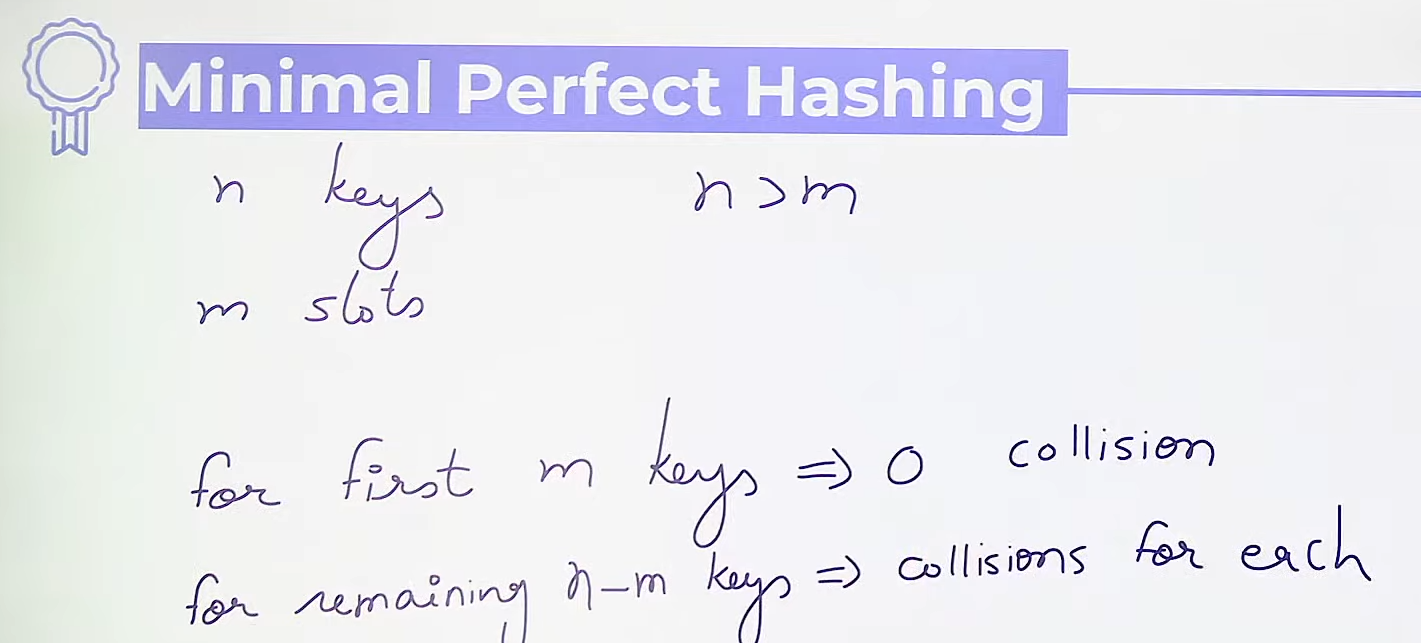 Minimal Perfect Hashing
n keys n>m
m slots
for first m keys => 0 collision
for remaining n-m keys => collisions for each